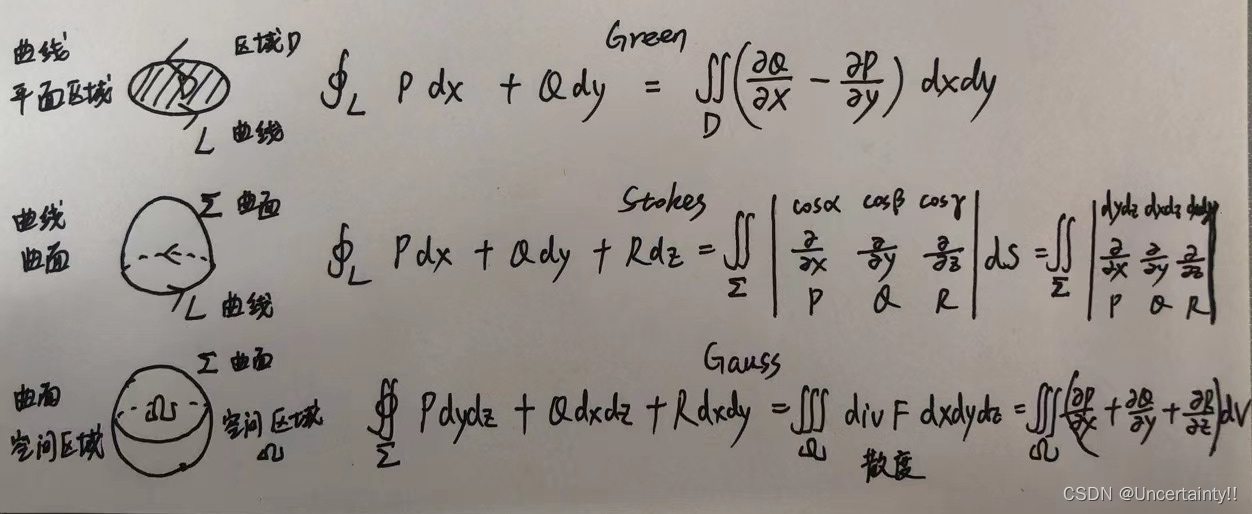 曲线
平面区域
区域D
D
L 曲线
Green
∮_L P dx + Q dy = ∬_D (∂Q/∂x − ∂P/∂y) dxdy
曲线
曲面
Σ 曲面
L 曲线
Stokes
∮_L P dx + Q dy + R dz = ∬_Σ | cosα cosβ cosγ ; ∂/∂x ∂/∂y ∂/∂z ; P Q R | dS = ∬_Σ | dydz dxdz dxdy ; ∂/∂x ∂/∂y ∂/∂z ; P Q R |
曲面
空间区域
Σ 曲面
Ω
空间区域
Ω
Gauss
∯_Σ P dydz + Q dxdz + R dxdy = ∭_Ω div F dxdydz = ∭_Ω (∂P/∂x + ∂Q/∂y + ∂R/∂z) dV
散度
CSDN @Uncertainty!!